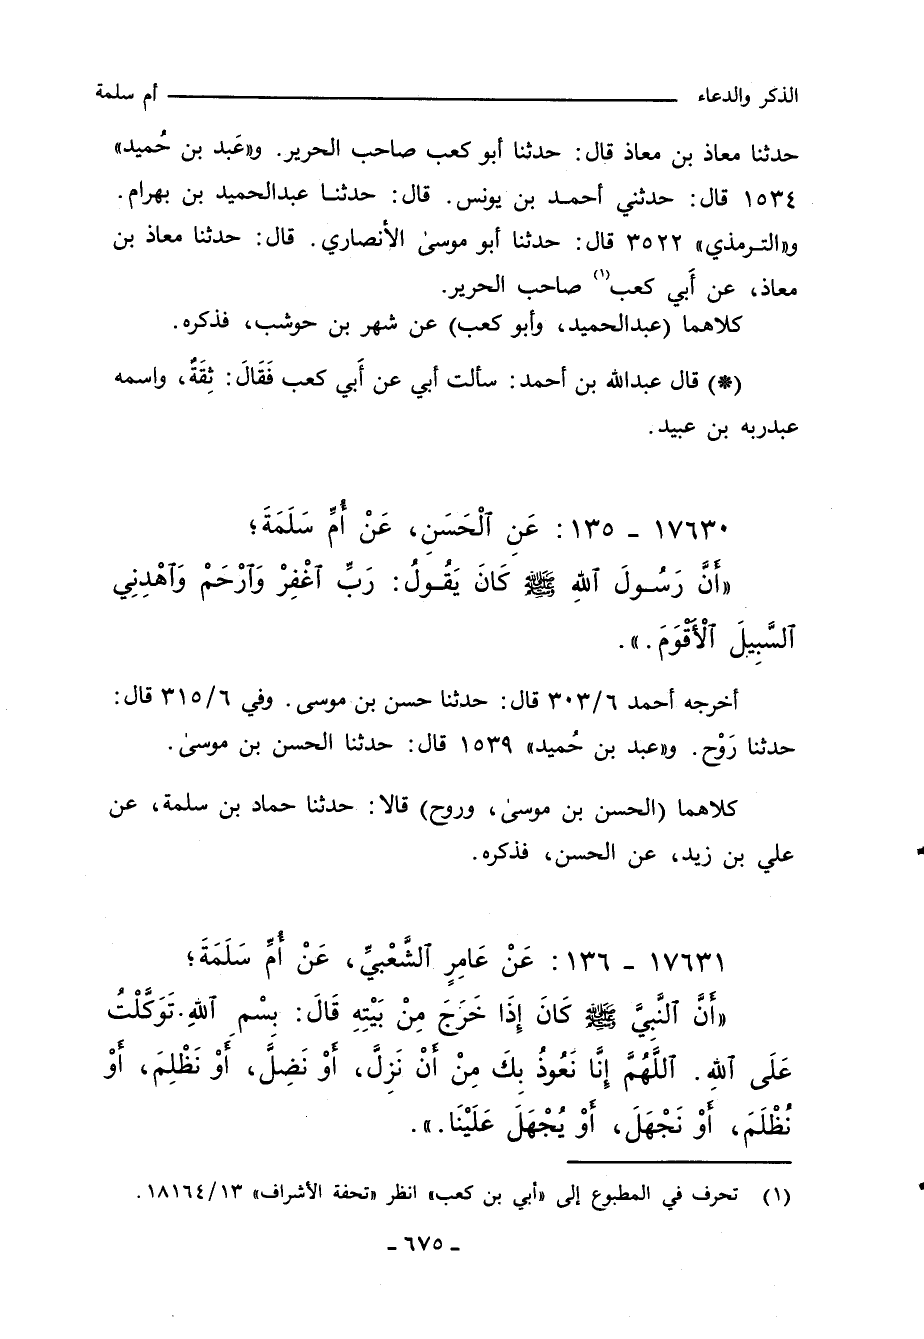 الذكر والدعاء ــــــــــــــــــــــــــــــــــــــــ أم سلمة
حدثنا معاذ بن معاذ قال: حدثنا أبو كعب صاحب الحرير. و«عَبد بن حُميد»
١٥٣٤ قال: حدثني أحمـد بن يونس. قال: حدثنـا عبدالحميد بن بهرام.
و«التـرمذي» ٣٥٢٢ قال: حدثنا أبو موسىٰ الأنصاري. قال: حدثنا معاذ بن
معاذ، عن أَبي كعب(١) صاحب الحرير.
كلاهما (عبدالحميد، وأبو كعب) عن شهر بن حوشب، فذكره.
(*) قال عبدالله بن أحمد: سألت أبي عن أَبي كعب فَقَالَ: ثِقَةٌ، واسمه
عبدربه بن عبيد.
١٧٦٣٠ ـ ١٣٥: عَنِ ٱلْحَسَنِ، عَنْ أُمِّ سَلَمَةَ؛
«أَنَّ رَسُـولَ ٱللهِ ﷺ كَانَ يَقُـولُ: رَبِّ ٱغْفِرْ وَٱرْحَمْ وَٱهْدِنِي
ٱلسَّبِيلَ ٱلْأَقْوَمَ.».
أخرجه أحمد ٣٠٣/٦ قال: حدثنا حسن بن موسى. وفي ٣١٥/٦ قال:
حدثنا رَوْح. و«عبد بن حُميد» ١٥٣٩ قال: حدثنا الحسن بن موسىٰ.
كلاهما (الحسن بن موسىٰ، وروح) قالا: حدثنا حماد بن سلمة، عن
علي بن زيد، عن الحسن، فذكره.
١٧٦٣١ ـ ١٣٦: عَنْ عَامِرٍ ٱلشَّعْبِيِّ، عَنْ أُمِّ سَلَمَةَ؛
«أَنَّ ٱلنَّبِيَّ ﷺ كَانَ إِذَا خَرَجَ مِنْ بَيْتِهِ قَالَ: بِسْمِ ٱللهِ. تَوَكَّلْتُ
عَلَى ٱللهِ. ٱللَّهُمَّ إِنَّا نَعُوذُ بِكَ مِنْ أَنْ نَزِلَّ، أَوْ نَضِلَّ، أَوْ نَظْلِمَ، أَوْ
نُظْلَمَ، أَوْ نَجْهَلَ، أَوْ يُجْهَلَ عَلَيْنَا.».
(١) تحرف في المطبوع إلى «أبي بن كعب» انظر «تحفة الأشراف» ١٨١٦٤/١٣.
ـ ٦٧٥ ـ